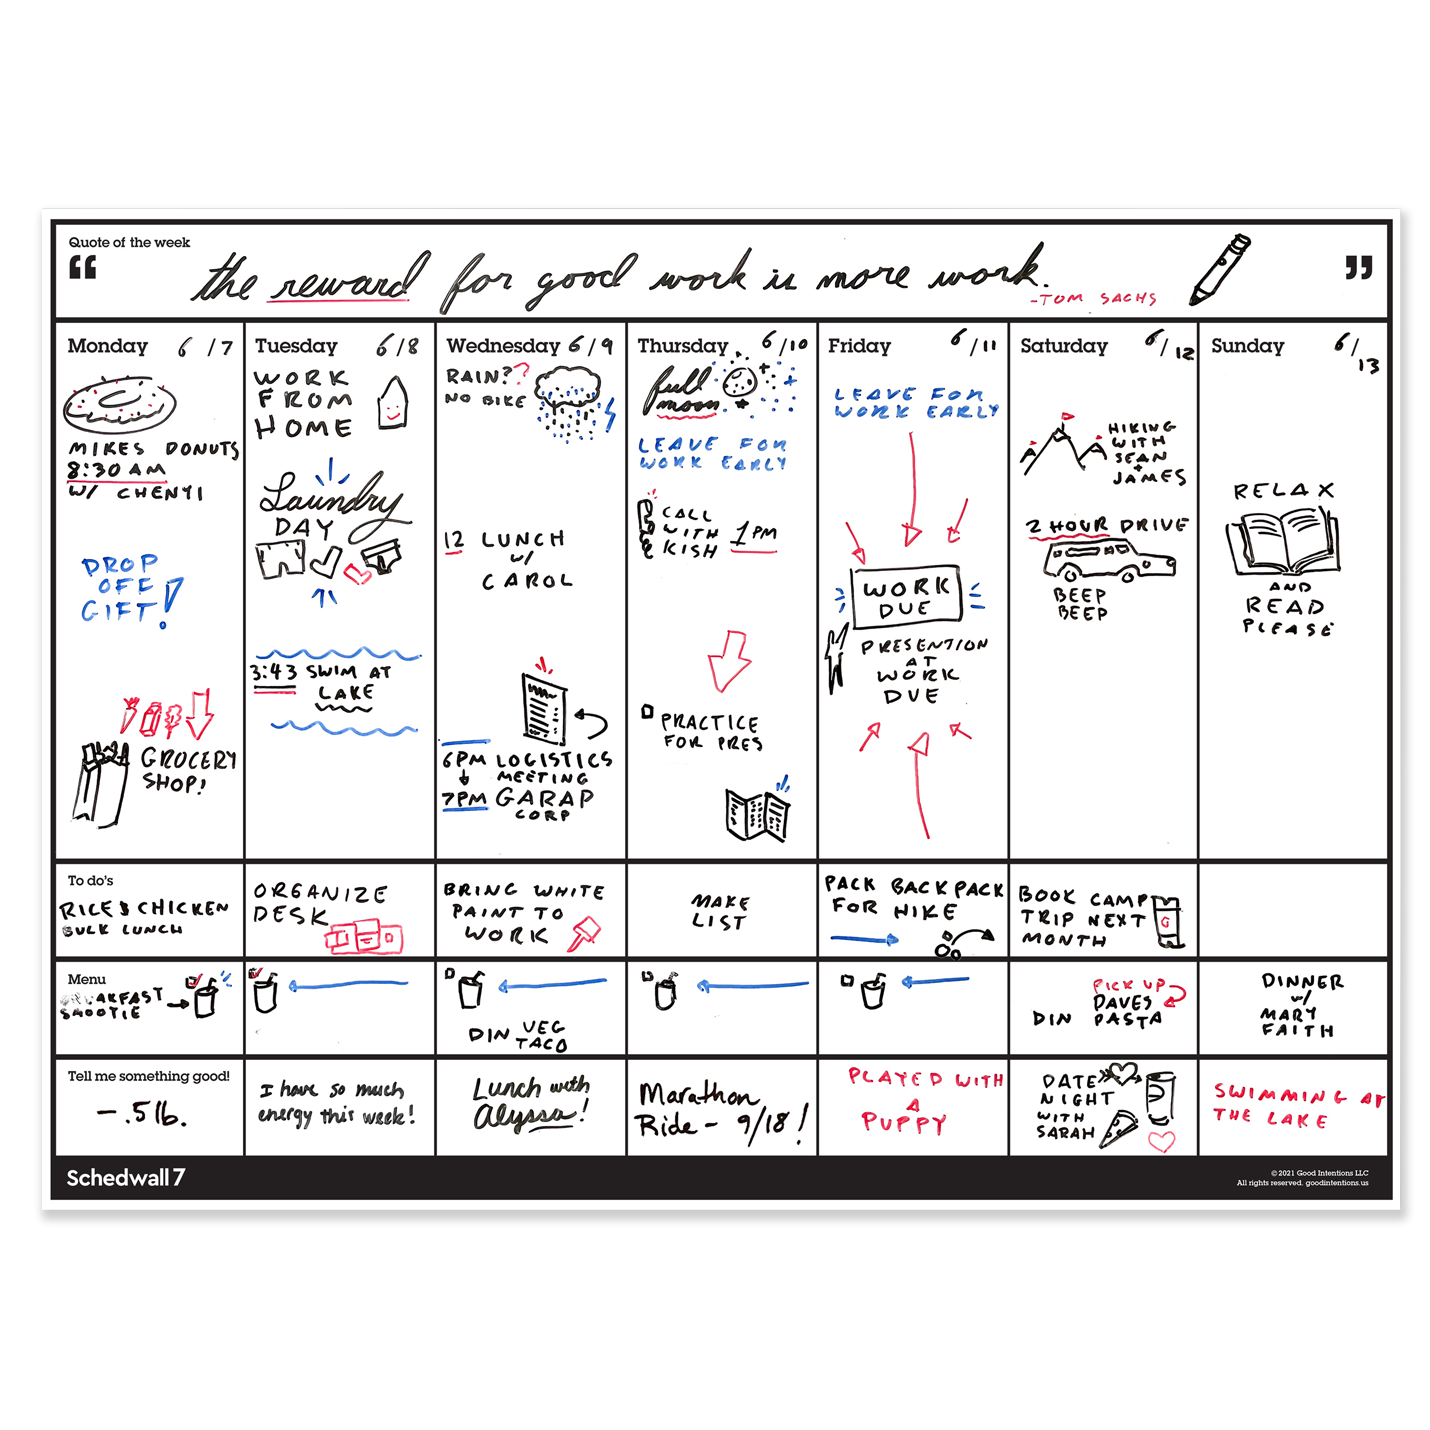 Quote of the week
“ the reward for good work is more work. ”
-TOM SACHS
Monday 6/7
MIKES DONUTS
8:30 AM
W/ CHENYI
DROP
OFF
GIFT!
GROCERY
SHOP!
Tuesday 6/8
WORK
FROM
HOME
Laundry
DAY
3:43 SWIM AT
LAKE
Wednesday 6/9
RAIN??
NO BIKE
12 LUNCH
W/
CAROL
6PM LOGISTICS
MEETING
7PM GARAP
CORP
Thursday 6/10
full
moon
LEAVE FOR
WORK EARLY
CALL
WITH 1PM
KISH
PRACTICE
FOR PRES
Friday 6/11
LEAVE FOR
WORK EARLY
WORK
DUE
PRESENTION
AT
WORK
DUE
Saturday 6/12
HIKING
WITH
SEAN
+
JAMES
2 HOUR DRIVE
BEEP
BEEP
Sunday 6/13
RELAX
AND
READ
PLEASE
To do's
RICE & CHICKEN
BULK LUNCH
ORGANIZE
DESK
BRING WHITE
PAINT TO
WORK
MAKE
LIST
PACK BACKPACK
FOR HIKE
BOOK CAMP
TRIP NEXT
MONTH
G
Menu
BREAKFAST
SMOOTIE
DIN VEG
TACO
PICK UP
DAVES
DIN PASTA
DINNER
W/
MARY
FAITH
Tell me something good!
-.5 lb.
I have so much
energy this week!
Lunch with
Alyssa!
Marathon
Ride - 9/18!
PLAYED WITH
A
PUPPY
DATE
NIGHT
WITH
SARAH
SWIMMING AT
THE LAKE
Schedwall 7
© 2021 Good Intentions LLC
All rights reserved. goodintentions.us